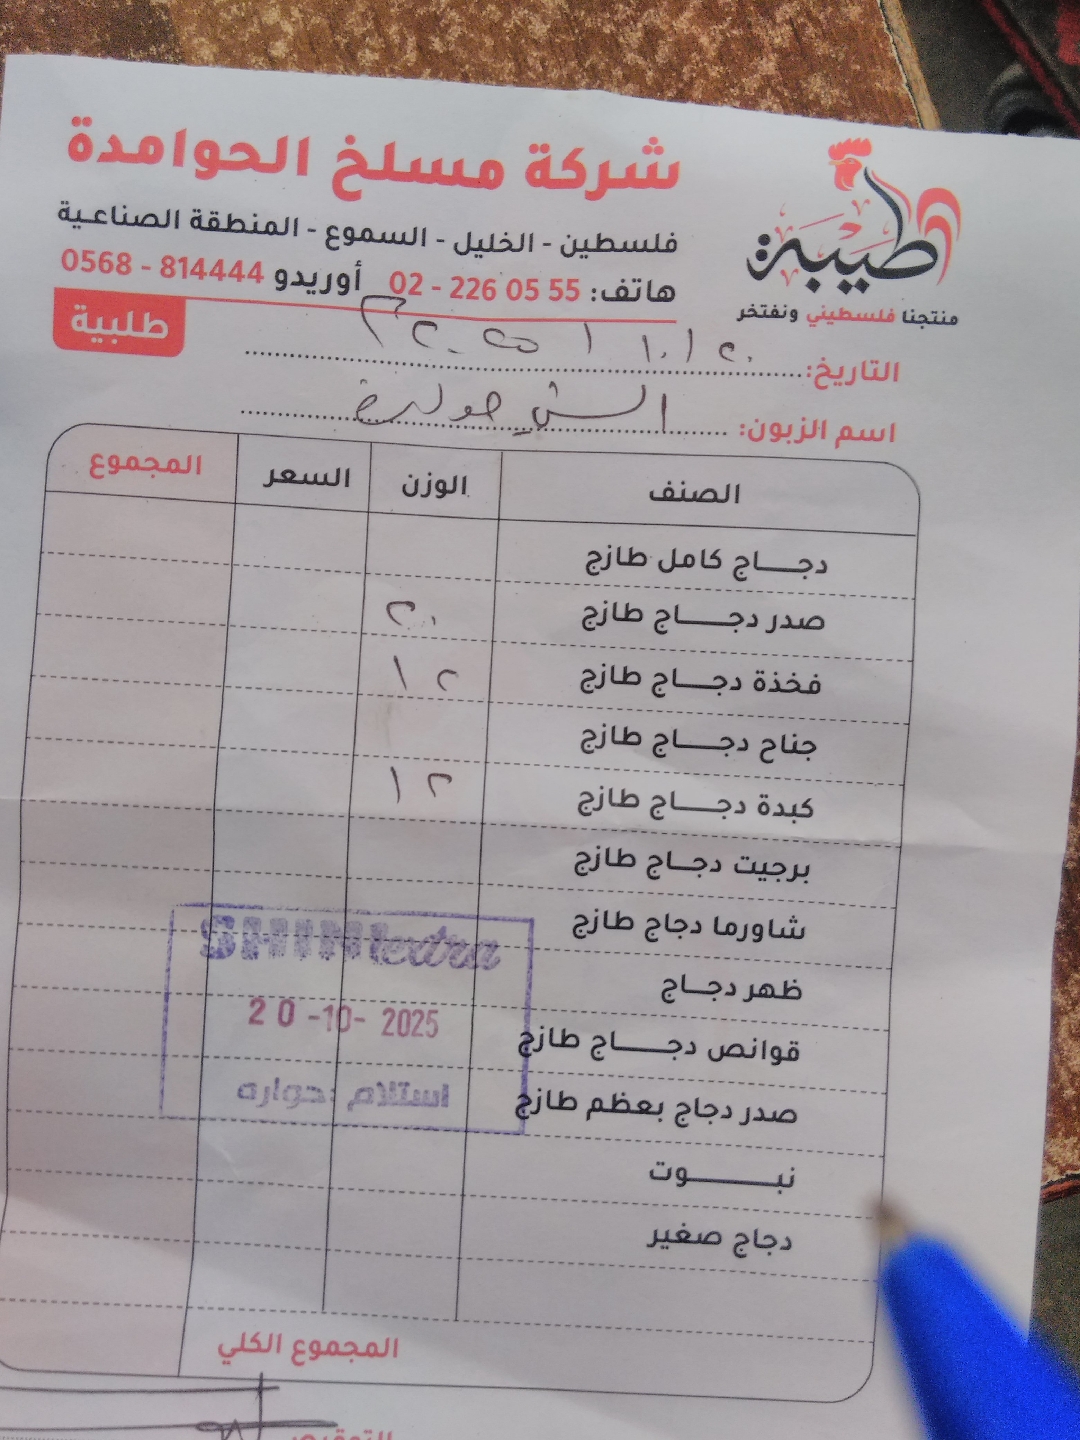 شركة مسلخ الحوامدة
فلسطين - الخليل - السموع - المنطقة الصناعية
هاتف: 02 - 226 05 55 أوريدو 0568 - 814444
طيبة
منتجنا فلسطيني ونفتخر
طلبية
التاريخ: ٢٠ / ١٠ / ٢٠٢٥ م
اسم الزبون: الشني حوارة
الصنف الوزن السعر المجموع
دجاج كامل طازج
صدر دجاج طازج ٢٠
فخذة دجاج طازج ١٢
جناح دجاج طازج
كبدة دجاج طازج ١٢
برجيت دجاج طازج
شاورما دجاج طازج
ظهر دجاج
قوانص دجاج طازج
صدر دجاج بعظم طازج
نبوت
دجاج صغير
SHINI extra
20 -10- 2025
استلام حواره
المجموع الكلي
التوقيع